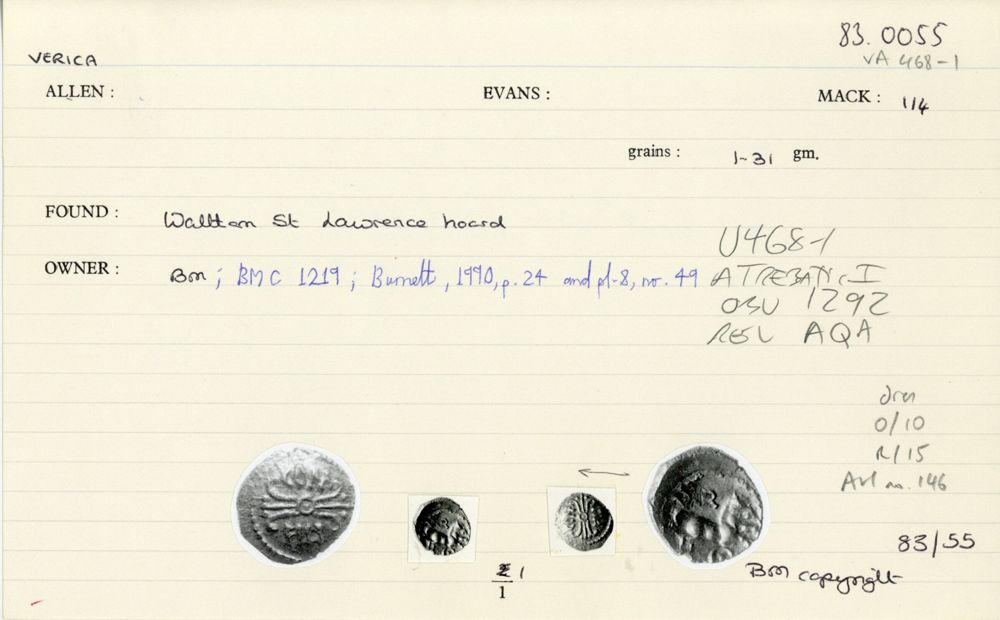 83.0055
VERICA
VA 468-1
ALLEN :
EVANS :
MACK : 114
grains : 1-31 gm.
FOUND : Waltham St Lawrence hoard
U468-1
OWNER : BM ; BMC 1219 ; Burnett, 1990, p. 24 and pl. 8, no. 49
OBV 1292
REV AQA
O/10
R/15
no. 146
83/55
BM copyright
1
1